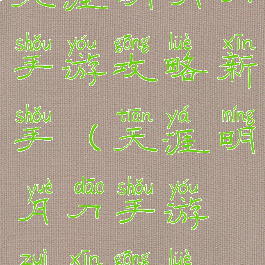 shǒu yóu gōng lüè xīn
手 游 攻 略 新
shǒu tiān yá míng
手 （ 天 涯 明
yuè dāo shǒu yóu
月 刀 手 游
zuì xīn gōng lüè